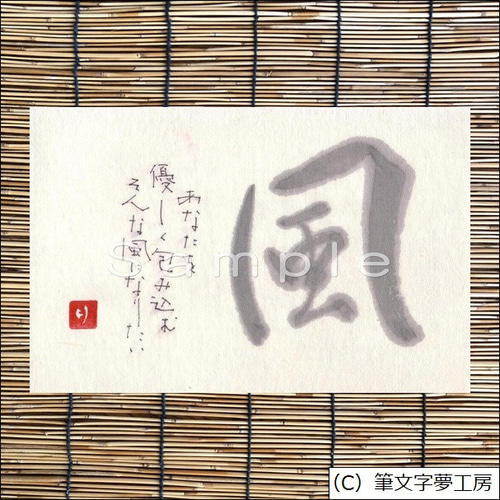 風
あなたを
優しく包み込む
そんな風になりたい
り
Sample
(C) 筆文字夢工房